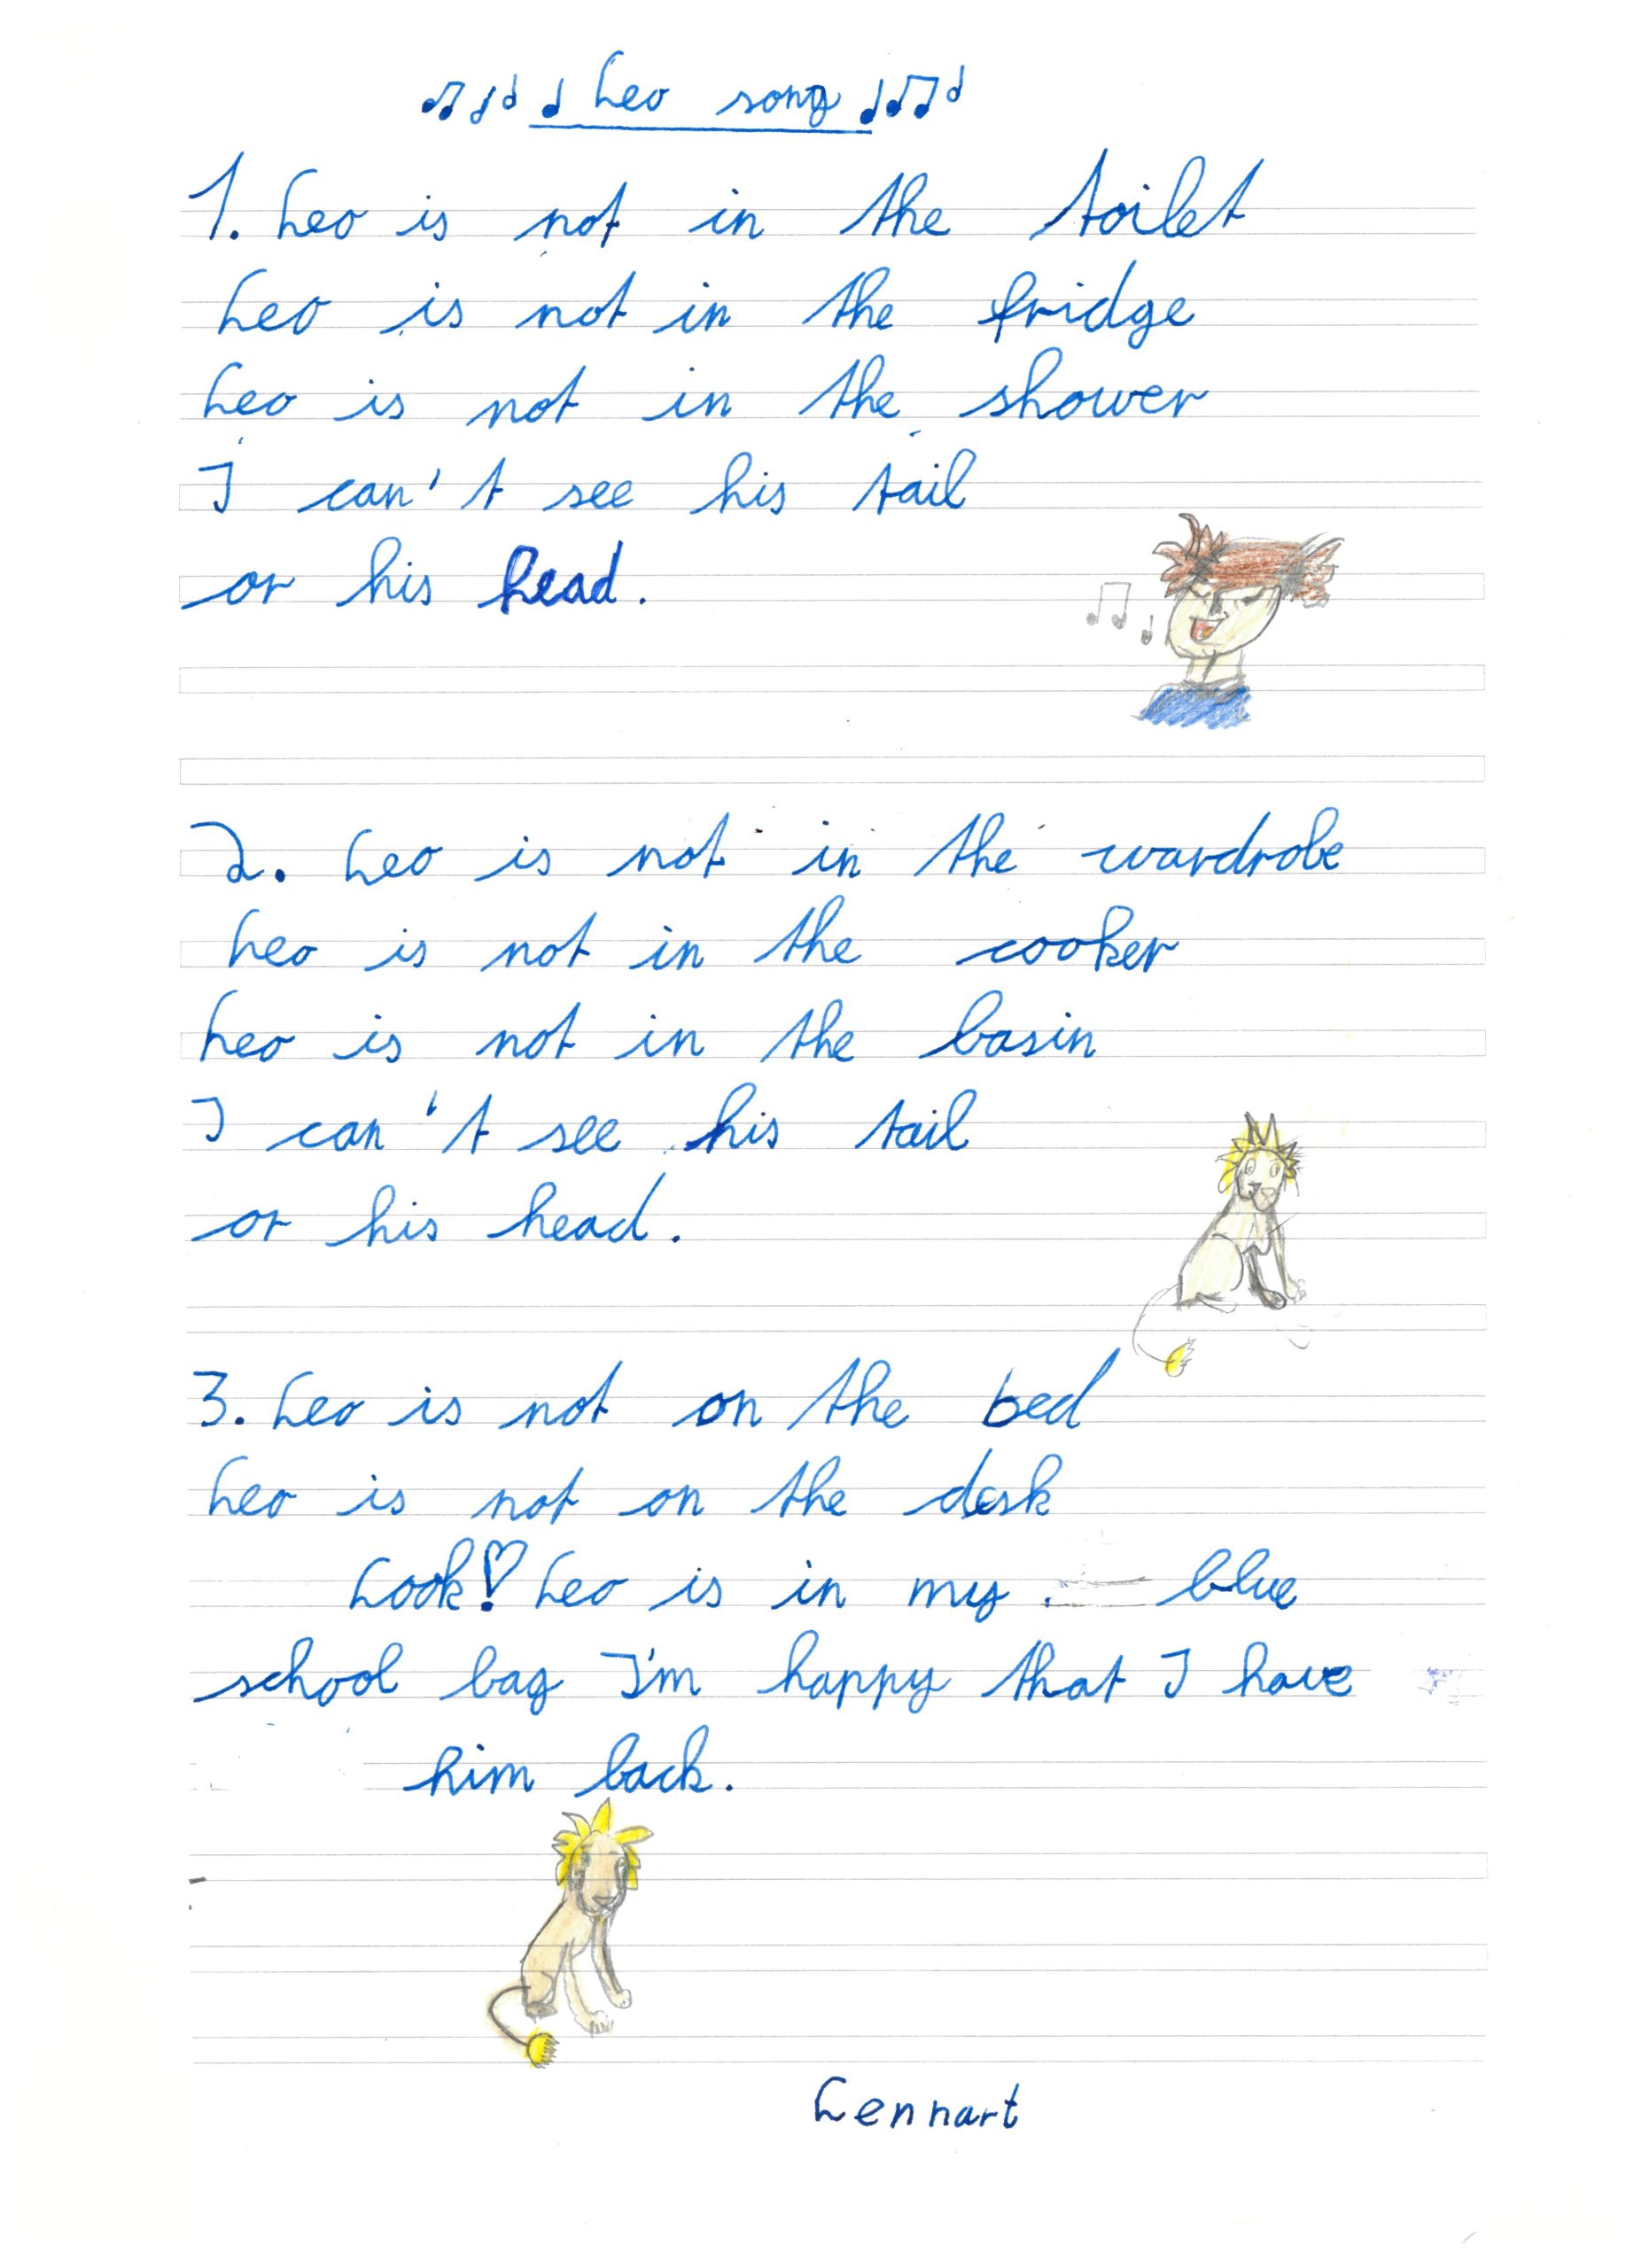 Leo song
1. Leo is not in the toilet
Leo is not in the fridge
Leo is not in the shower
I can't see his tail
or his head.
2. Leo is not in the wardrobe
Leo is not in the cooker
Leo is not in the basin
I can't see his tail
or his head.
3. Leo is not on the bed
Leo is not on the desk
Look! Leo is in my blue
school bag I'm happy that I have
him back.
Lennart